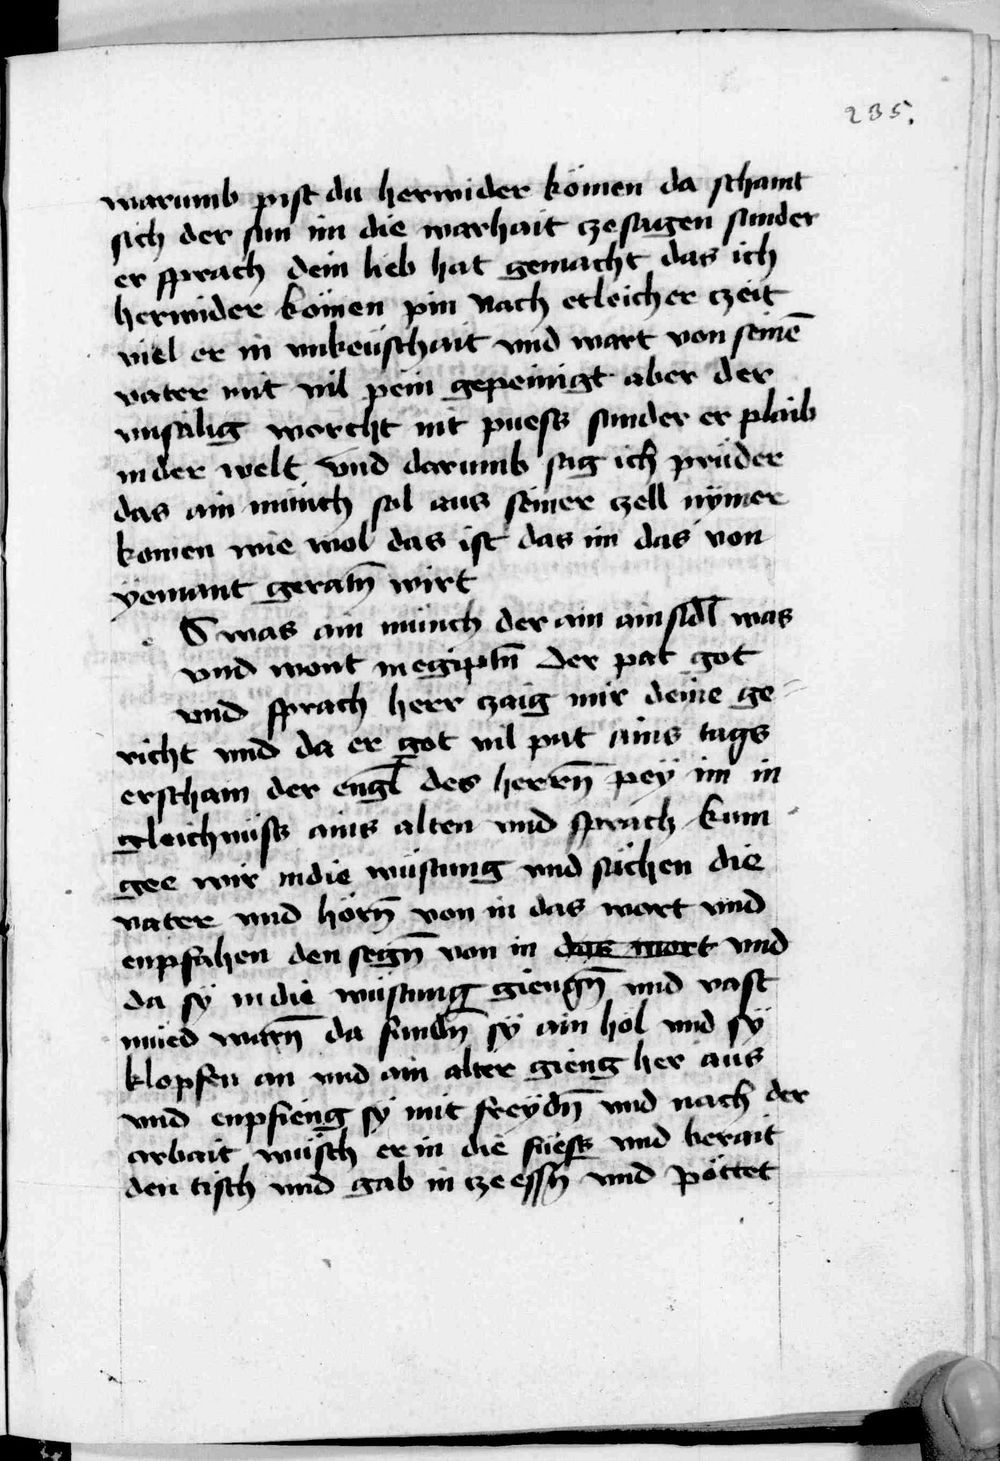 235.
warumb pist du herwider kömen da schamt
sich der sun im die warhait zesagen sunder
er sprach dein lieb hat gemacht das ich
herwider kömen pin Nach etleicher czeit
viel er in vnkeüschait vnd wart von seinē
vater mit vil pein gepeinigt aber der
vnsälig worcht nit puess sunder er plaib
in der welt vnd darumb sag ich prüder
das ain münch sol aus seiner czell nymer
komen wie wol das ist das im das von
yemant geratn̄ wirt
S was ain münch der ain ainsidl̄ was
vnd wont in egiptn̄ der pat got
vnd sprach herr czaig mir deine ge
richt vnd da er got vil pat ains tags
erscham der engl̄ des herrn̄ pey im in
gleichnüss ains alten vnd sprach kum
gee wir in die wüstung vnd süchen die
vater vnd hörn̄ von in das wort vnd
enpfahen den segn̄ von in das wort vnd
da sy in die wüstung giengn̄ vnd vast
müed warn̄ da fundn̄ sy ain hol vnd sy
klopfen an vnd ain alter gieng her aus
vnd enpfieng sy mit freydn̄ vnd nach der
arbait wüsch er in die füess vnd berait
den tisch vnd gab in cze essn̄ vnd pöttet